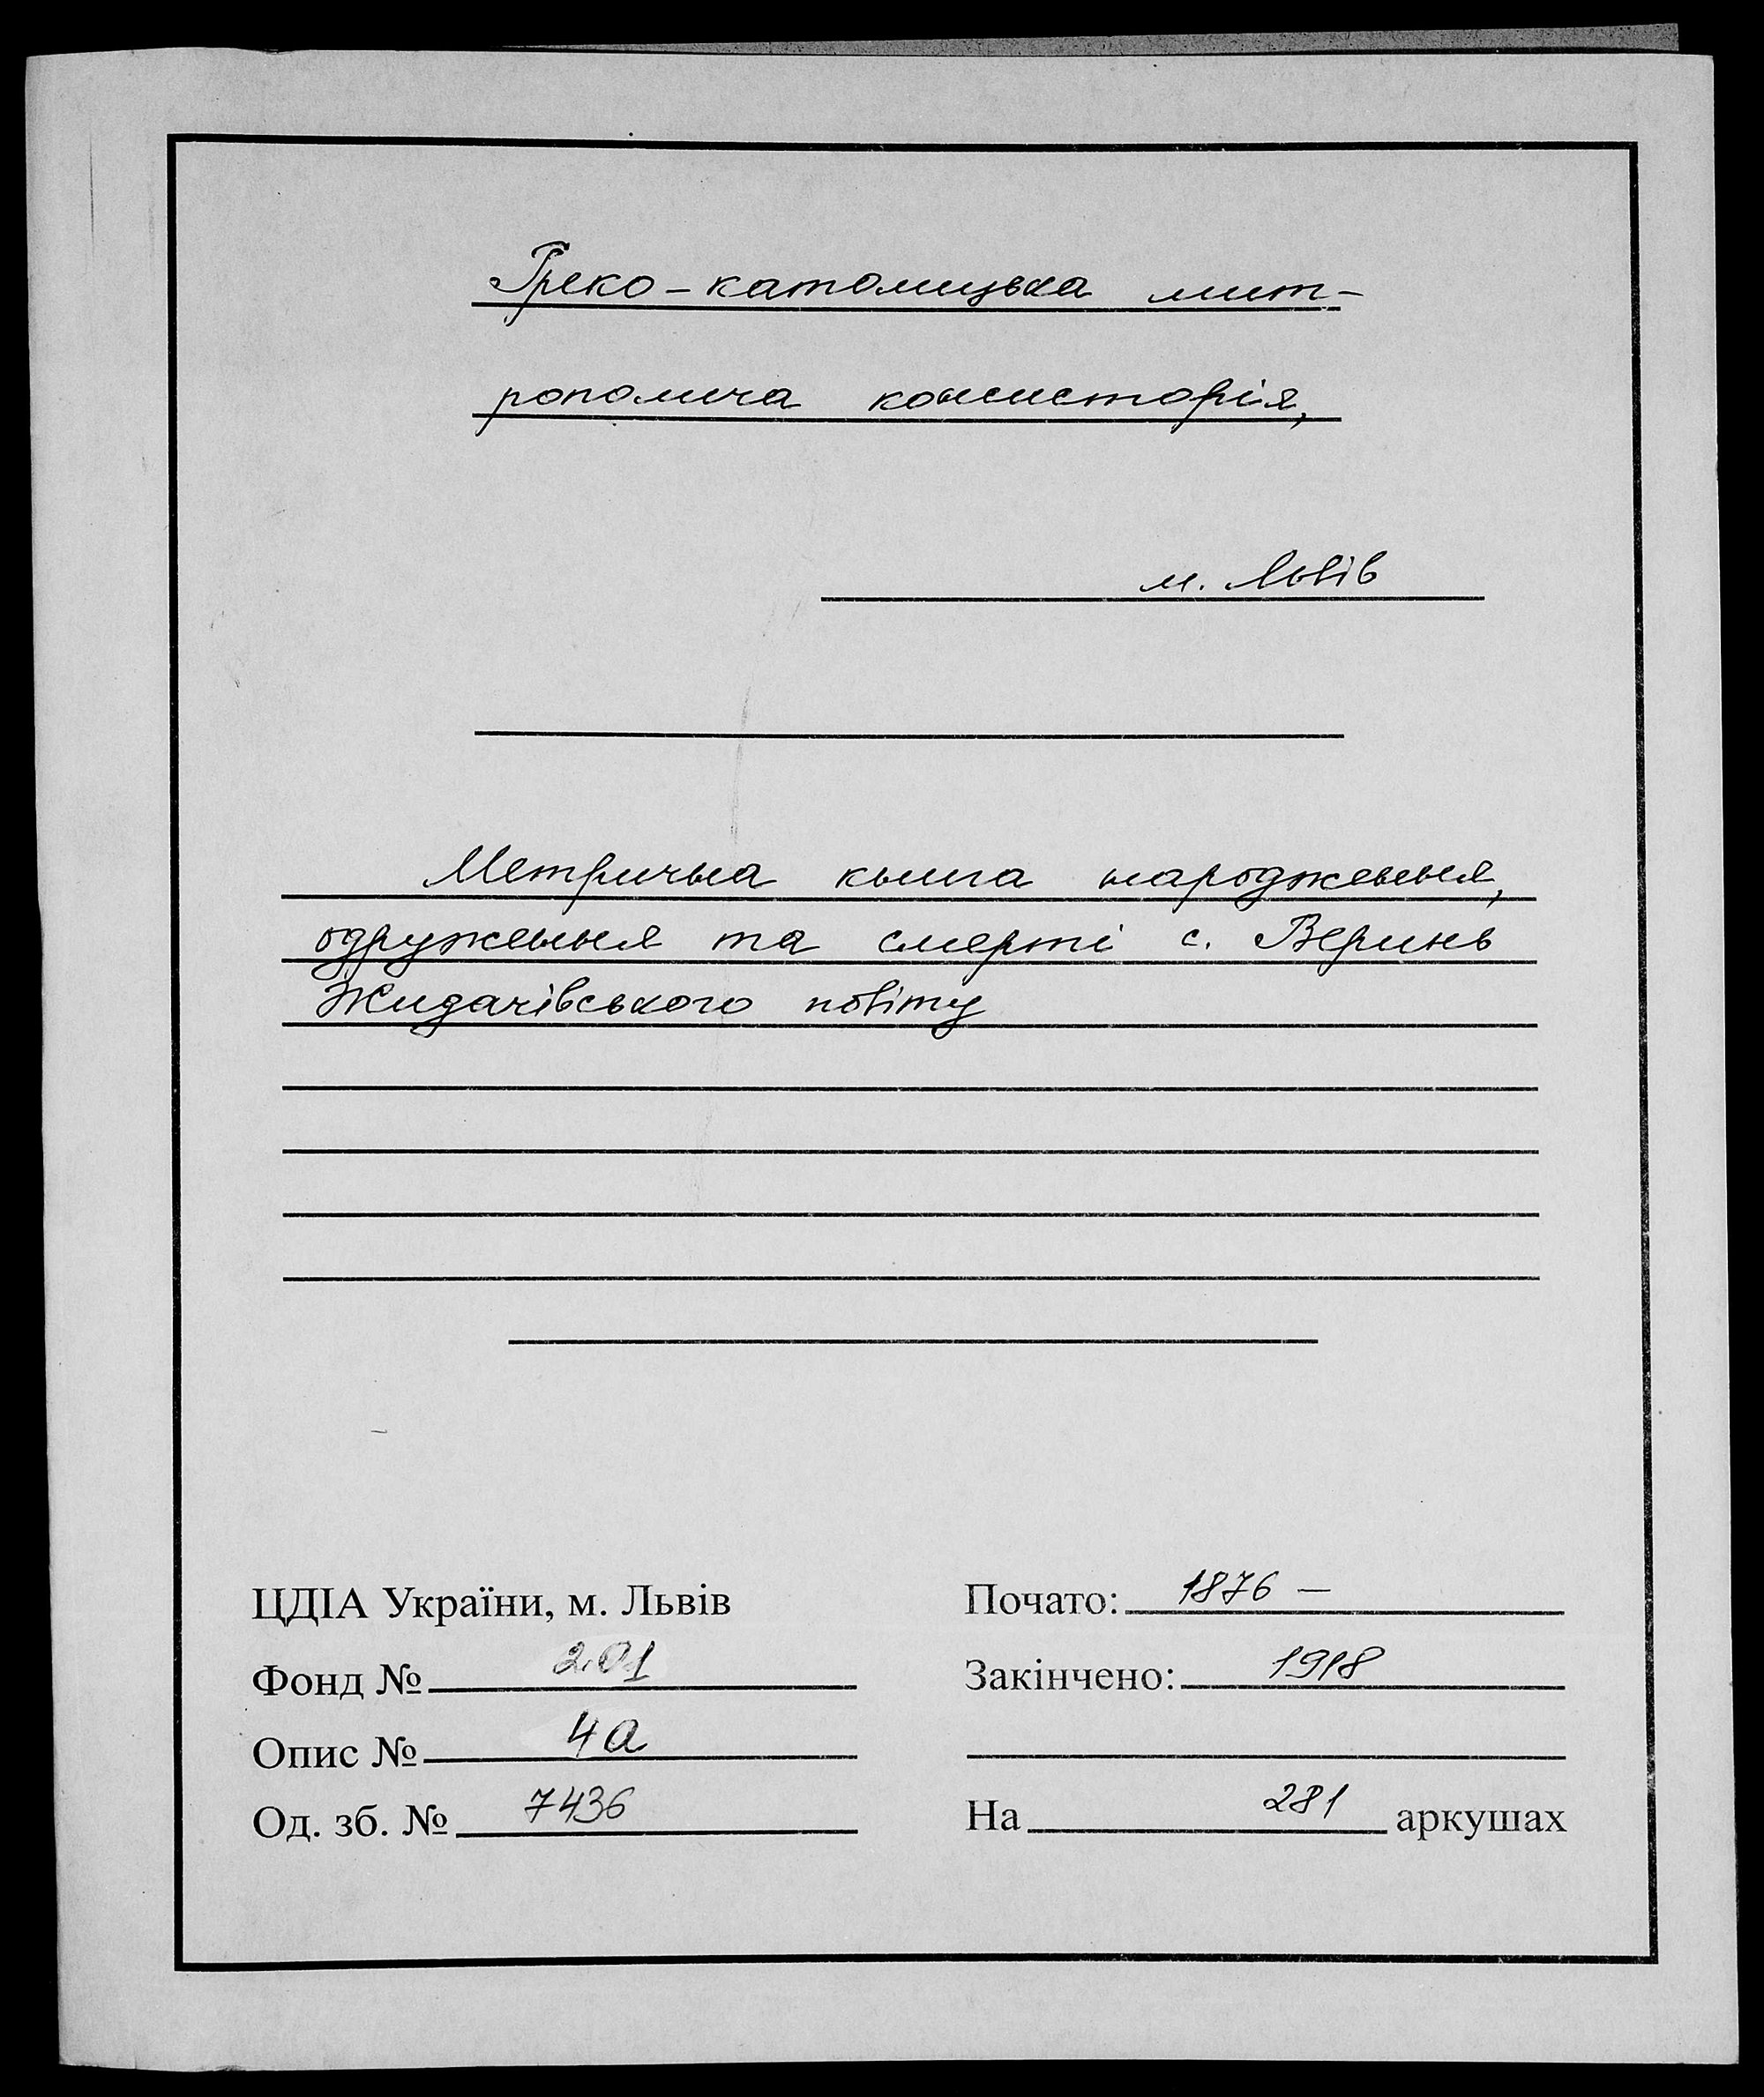 Греко-католицька мит-
рополича консисторія,
м. Львів
Метрична книга народження,
одруження та смерті с. Веринь
Жидачівського повіту
ЦДІА України, м. Львів
Почато: 1876 —
Фонд № 201
Закінчено: 1918
Опис № 4а
Од. зб. № 7436
На 281 аркушах